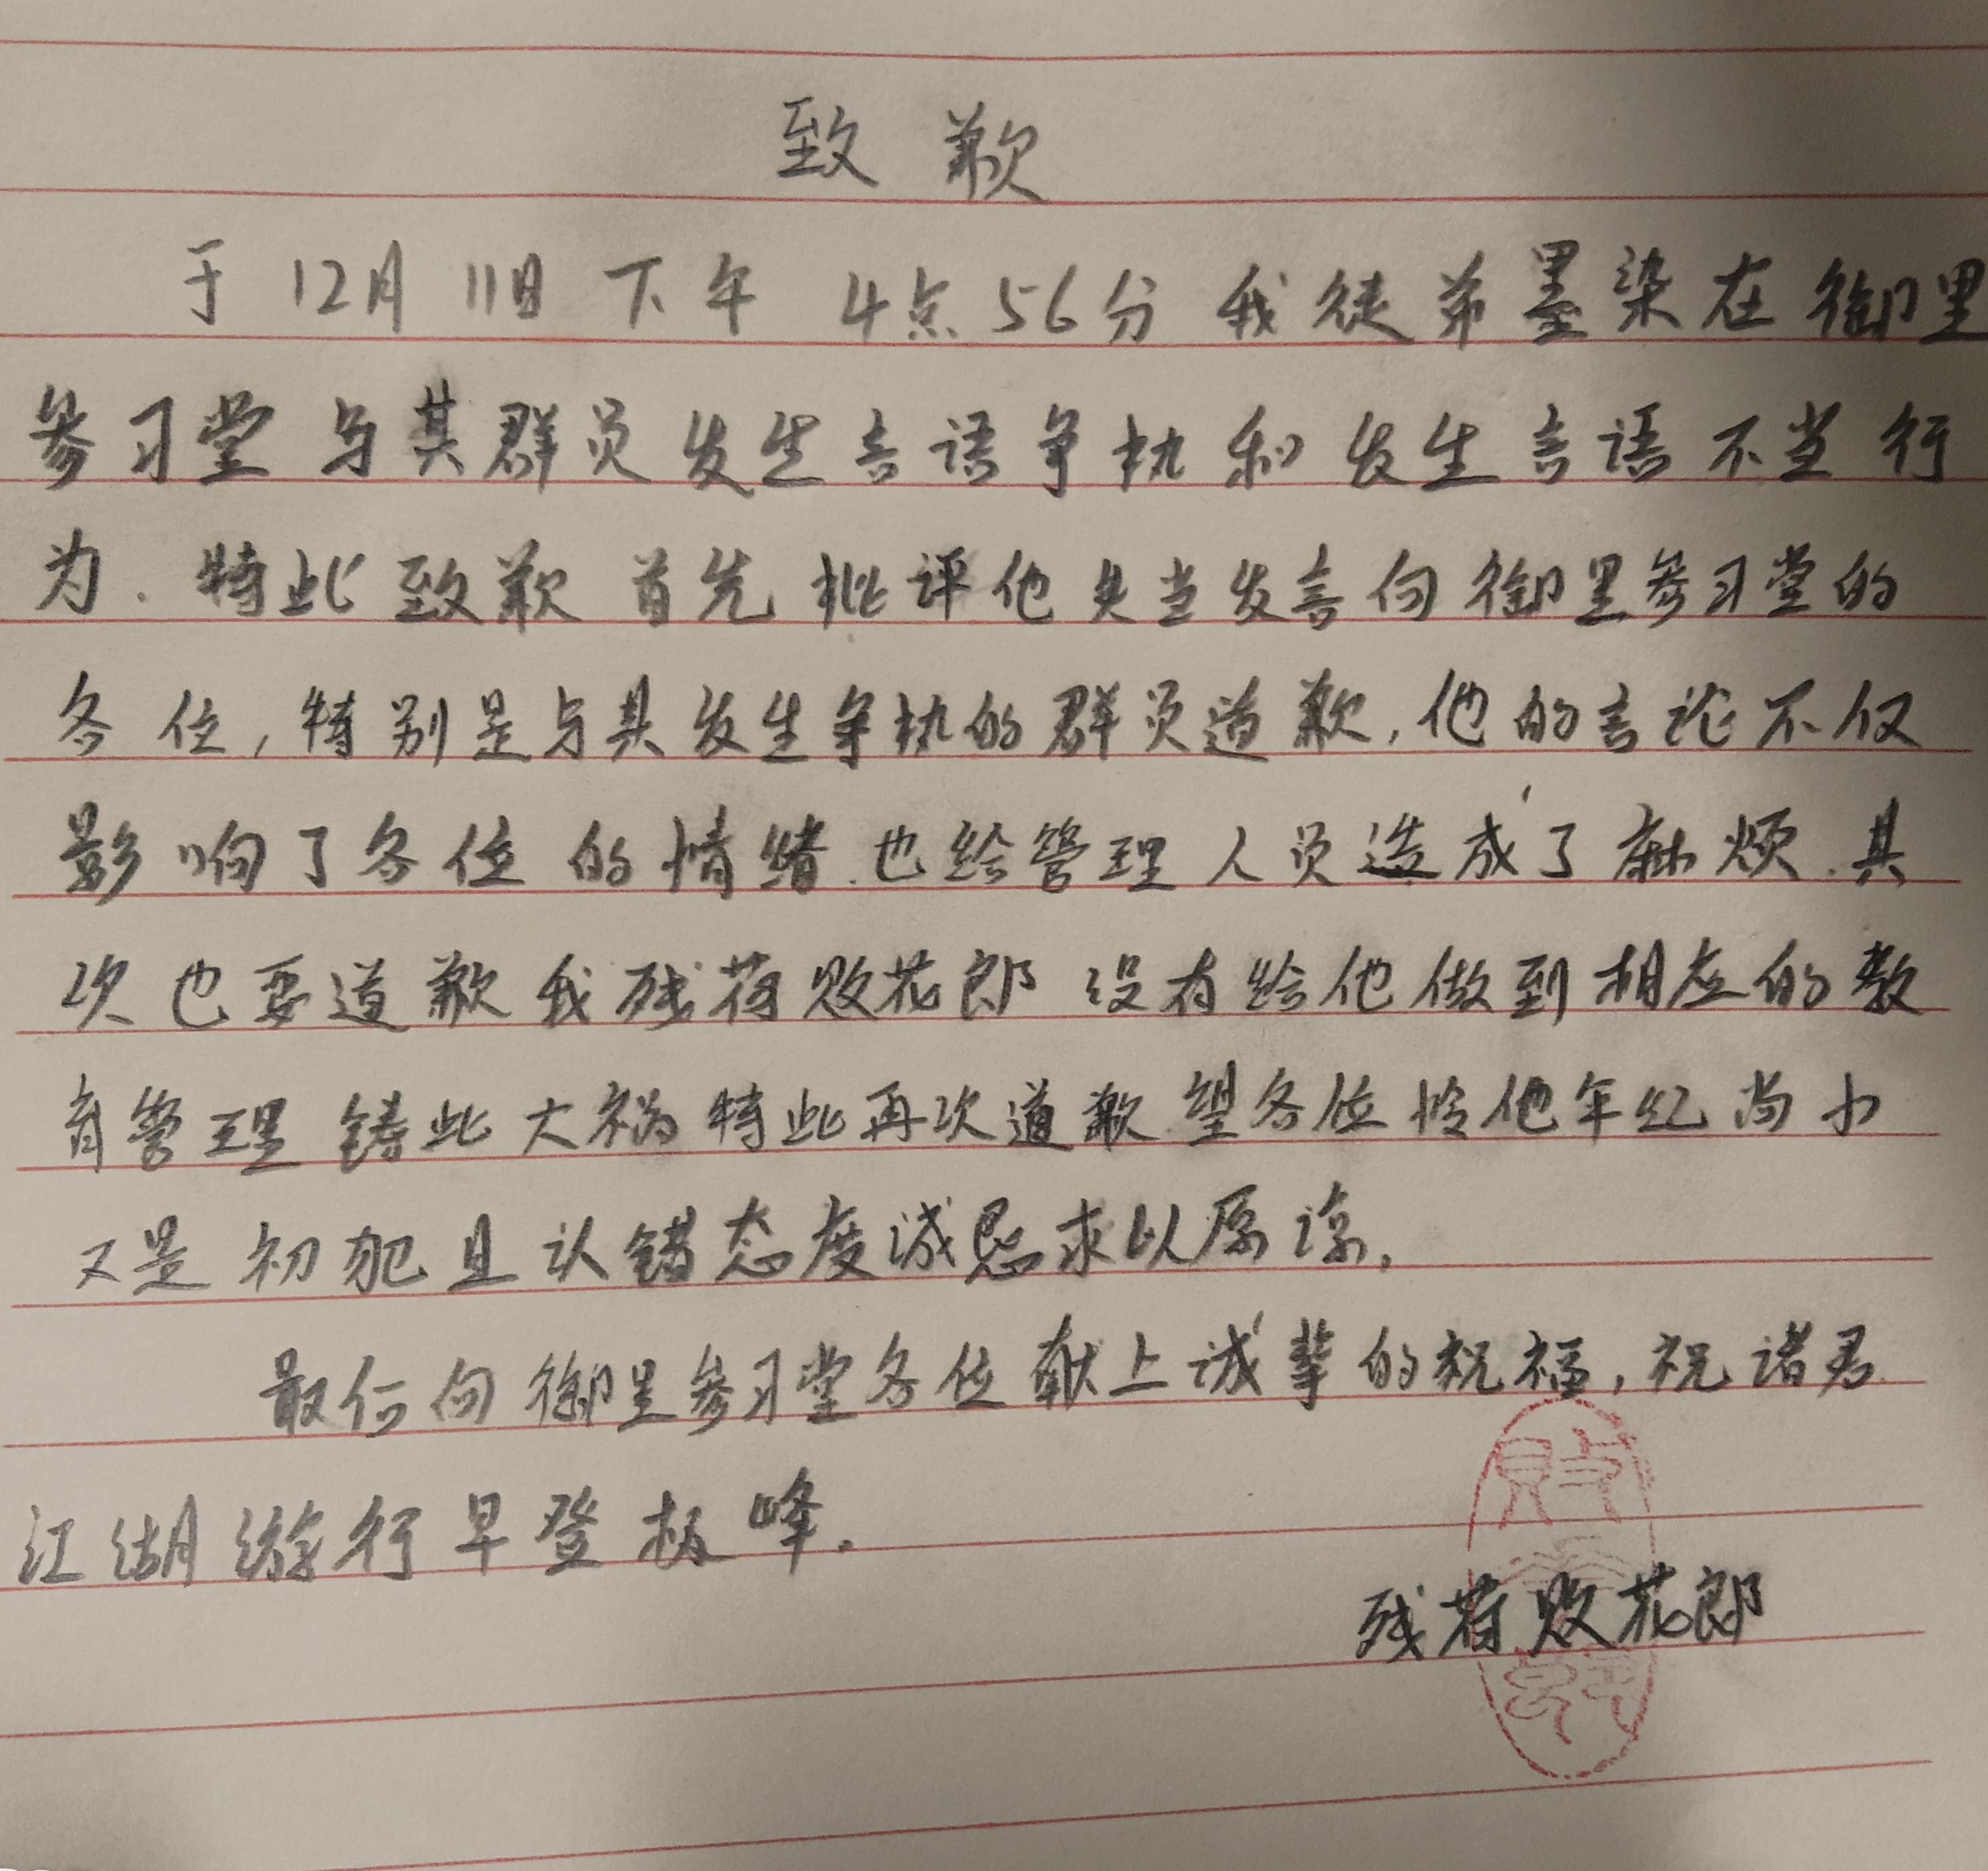 致歉
于12月11日下午4点56分我徒弟墨染在御里
参习堂与其群员发生言语争执和发生言语不当行
为.特此致歉首先批评他失当发言向御里参习堂的
各位,特别是与其发生争执的群员道歉,他的言论不仅
影响了各位的情绪.也给管理人员造成了麻烦.其
次也要道歉我残荷败花郎没有给他做到相应的教
育管理铸此大祸特此再次道歉望各位怜他年纪尚小
又是初犯且认错态度诚恳求以原谅,
最后向御里参习堂各位献上诚挚的祝福,祝诸君
江湖游行早登极峰.
残荷败花郎